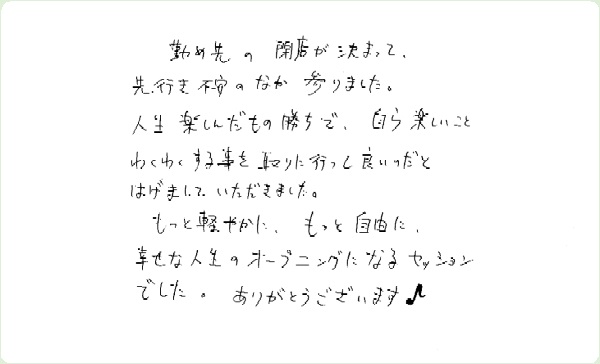 勤め先の閉店が決まって、
先行き不安のなか参りました。
人生楽しんだもの勝ちで、自ら楽しいこと
わくわくする事を取りに行って良いんだと
はげましていただきました。
もっと軽やかに、もっと自由に、
幸せな人生のオープニングになるセッション
でした。ありがとうございます♪